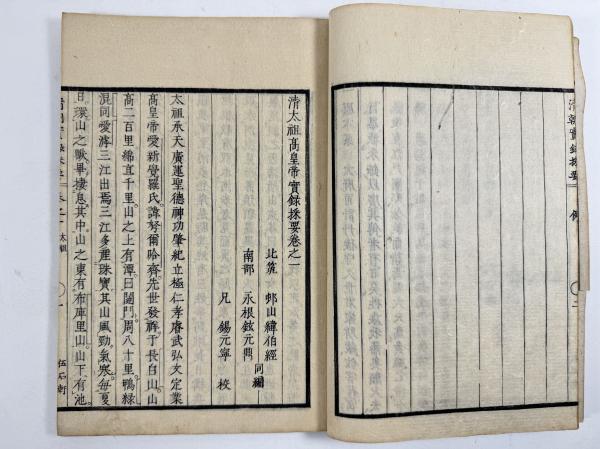 清朝實錄採要
例
二
清太祖高皇帝實錄採要卷之一
北筑 邨山緯伯經
南部 永根鉉元鼎 同編
兄 錫元寧 校
太祖承天廣運聖德神功肇紀立極仁孝睿武弘文定業
高皇帝愛新覺羅氏諱努爾哈齊先世發祥于長白山山
高二百里綿亘千里山之上有潭曰闥門周八十里鴨綠
混同愛滹三江出焉三江多産珠寶其山風勁氣寒每夏
日環山之獸畢棲息其中山之東有布庫里山山下有池
清朝實錄採要 卷之一 太祖
一
伍石軒